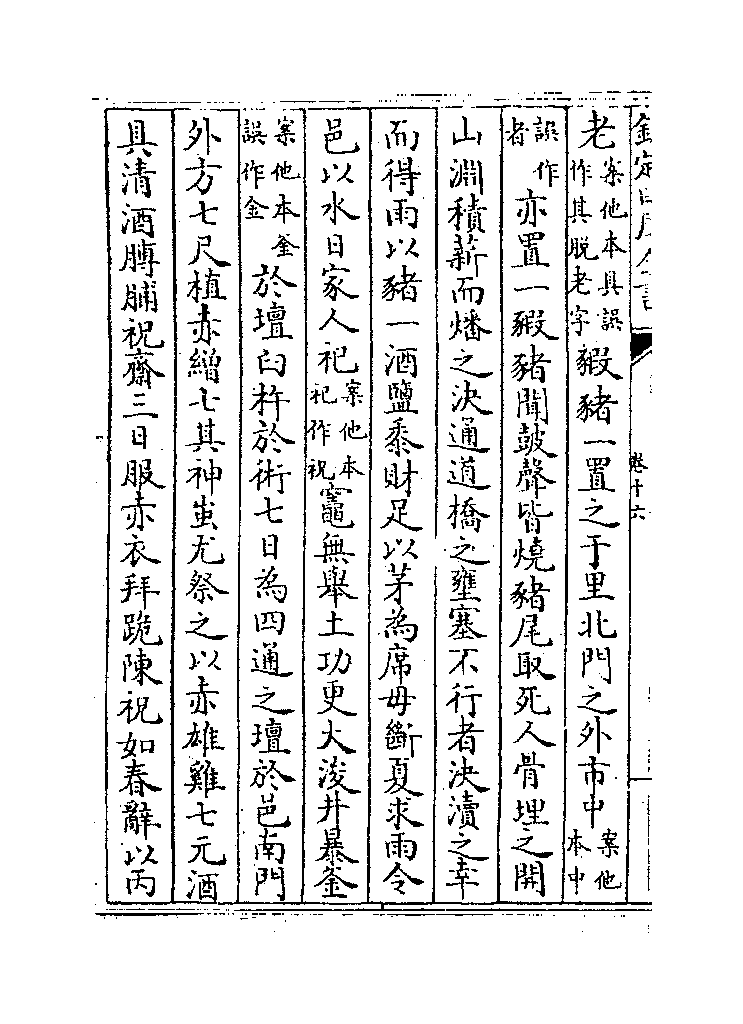 欽定四庫全書
卷十六
老案他本具誤作其脫老字豭豬一置之于里北門之外市中案他本中
誤作者亦置一豭豬聞鼓聲皆燒豬尾取死人骨埋之開
山淵積薪而燔之決通道橋之壅塞不行者決瀆之幸
而得雨以豬一酒鹽黍財足以茅為席毋斷夏求雨令
邑以水日家人祀案他本祀作祝竈無舉土功更大浚井暴釜
案他本釜誤作金於壇臼杵於術七日為四通之壇於邑南門
外方七尺植赤繒七其神蚩尤祭之以赤雄雞七元酒
具清酒膊脯祝齋三日服赤衣拜跪陳祝如春辭以丙